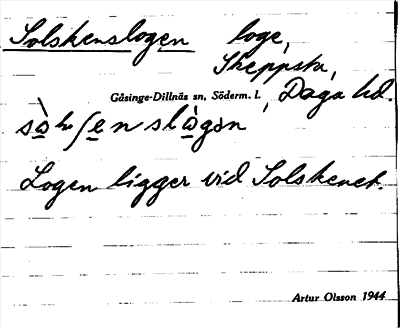 Solskenslogen loge,
Skeppsta,
Gåsinge-Dillnäs sn, Söderm. l., Daga hd.
Logen ligger vid Solskenet.
Artur Olsson 1944